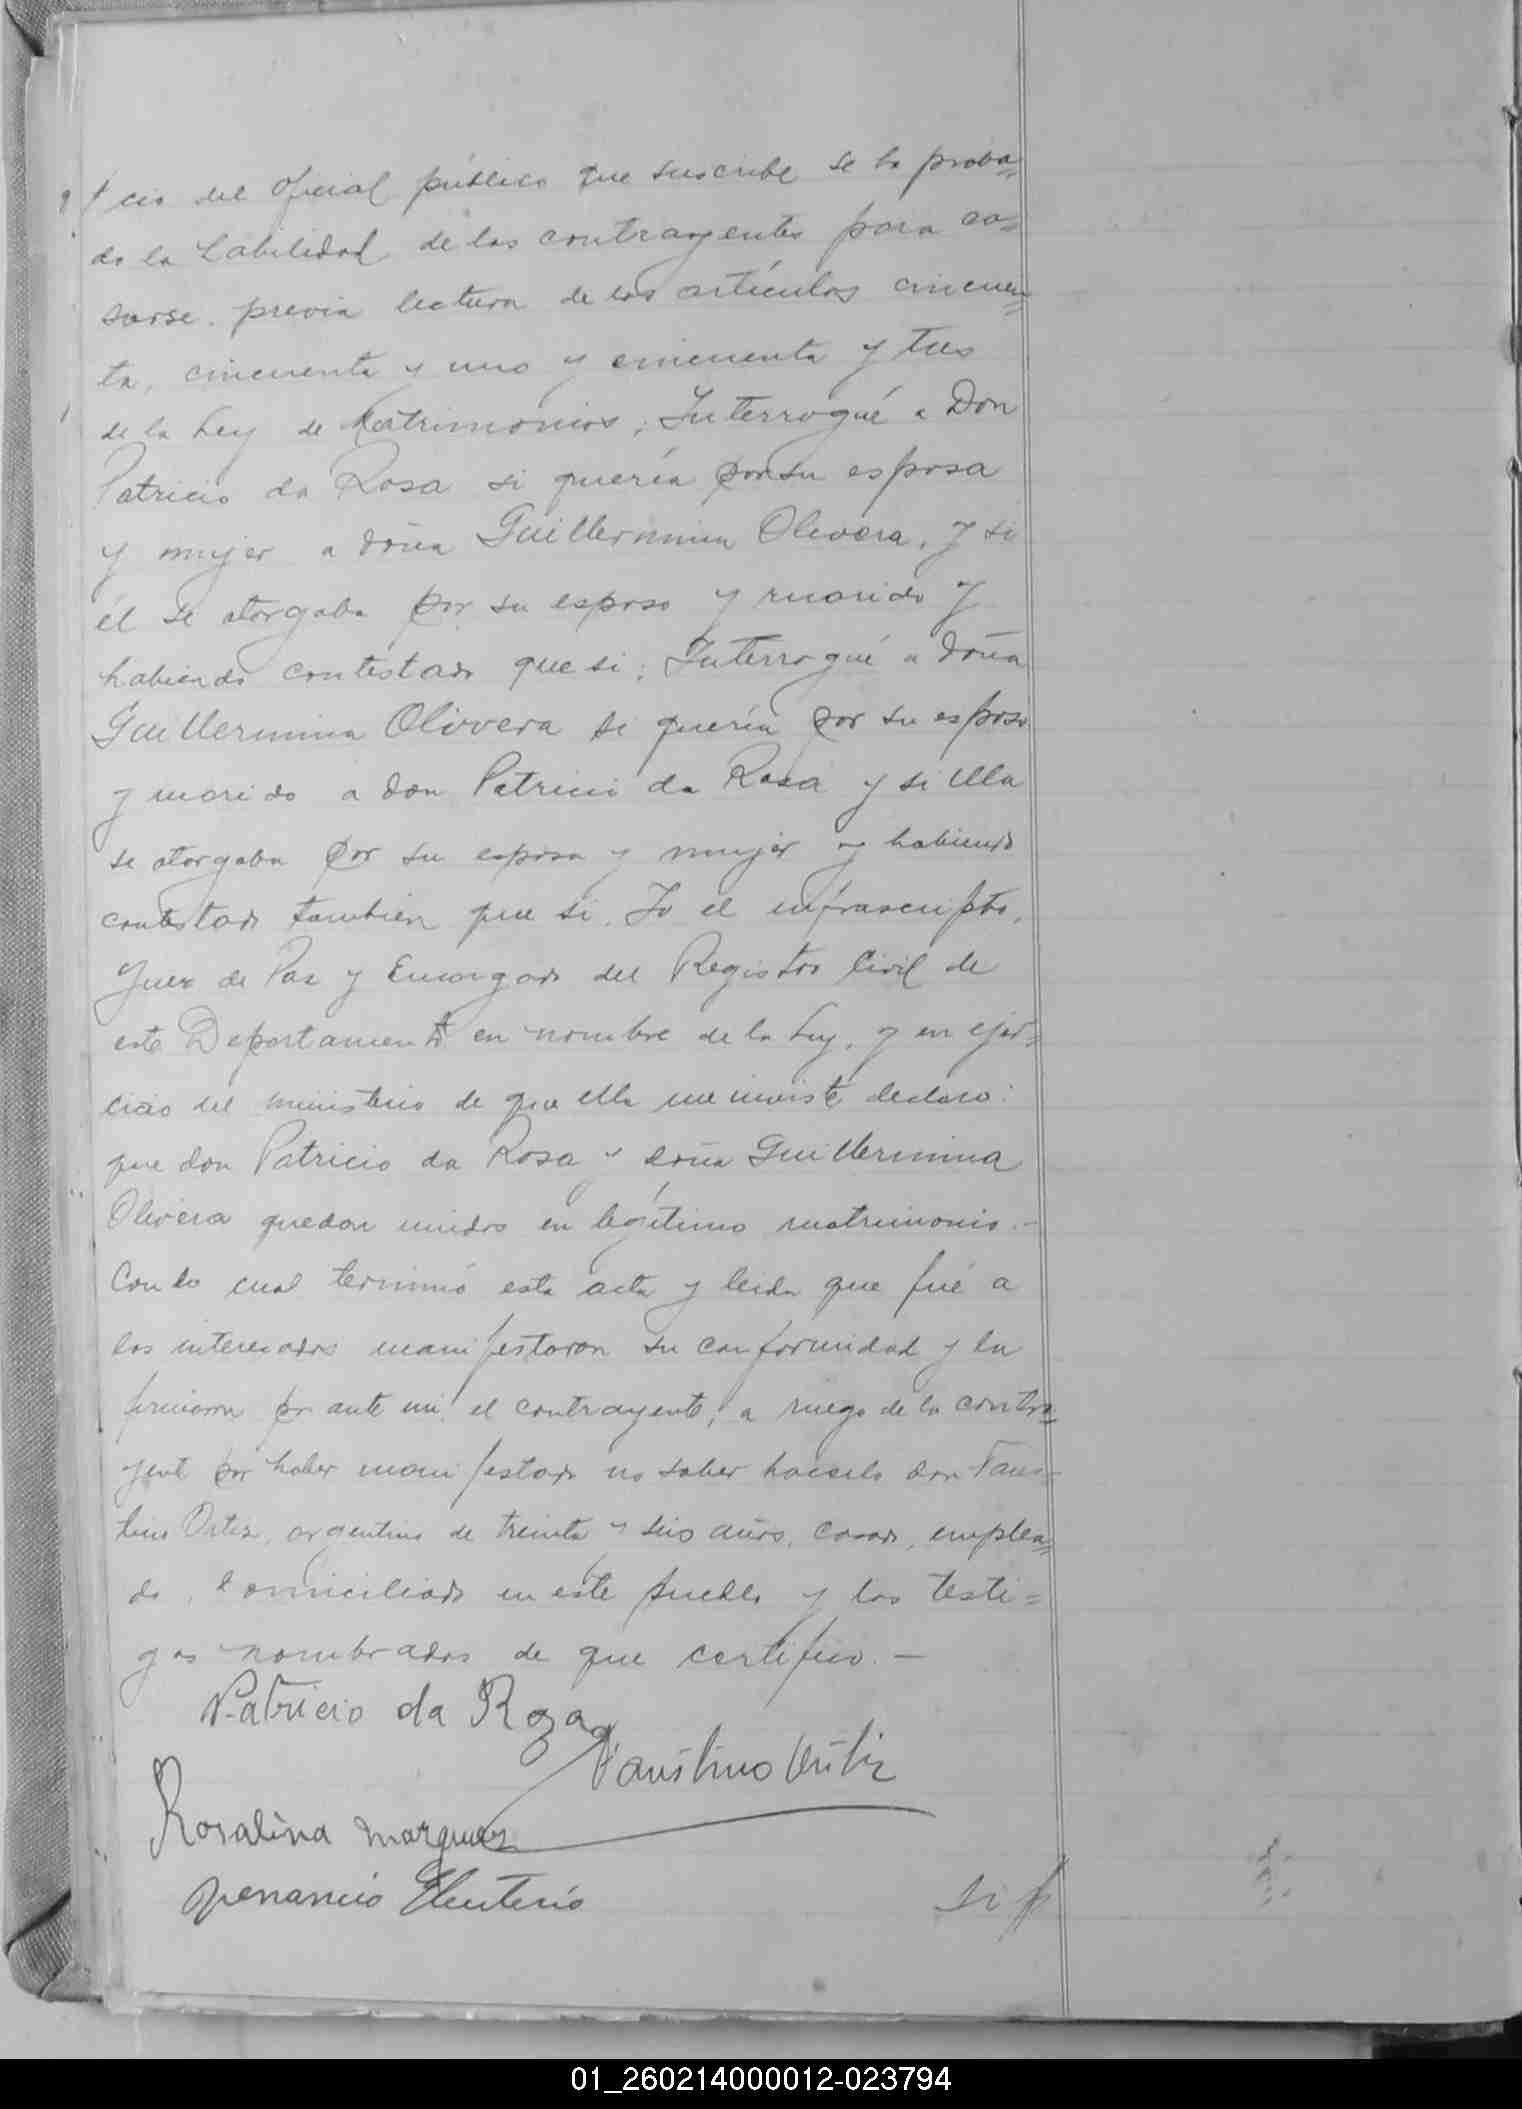 cio del oficial público que suscribe se ha proba=
do la habilidad de los contrayentes para ca=
sarse. previa lectura de los artículos cincuen=
ta, cincuenta y uno y cincuenta y tres
de la Ley de Matrimonios; Interrogué a Don
Patricio da Rosa si quería por su esposa
y mujer a doña Guillermina Olivera, y si
él se otorgaba por su esposo y marido y
habiendo contestado que si; Interrogué a doña
Guillermina Olivera si quería por su esposo
y marido a don Patricio da Rosa y si ella
se otorgaba por su esposa y mujer y habiendo
contestado tambien que si. Yo el infrascripto,
Juez de Paz y Encargado del Registro Civil de
este Departamento en nombre de la Ley, y en ejer=
cicio del ministerio de que ella me inviste declaro:
que don Patricio da Rosa y doña Guillermina
Olivera quedan unidos en legítimo matrimonio.-
Con lo cual terminó esta acta y leida que fué a
los interesados manifestaron su conformidad y la
firmaron por ante mi el contrayente, a ruego de la contra=
yente por haber manifestado no saber hacerlo don Faus=
tino Ortiz, argentino de treinta y seis años, casado, emplea=
do, domiciliado en este pueblo y los testi=
gos nombrados de que certifico.—
Patricio da Roza
Faustino Ortiz
Rosalina Marquez
Venancio Eleuterio
01_260214000012-023794